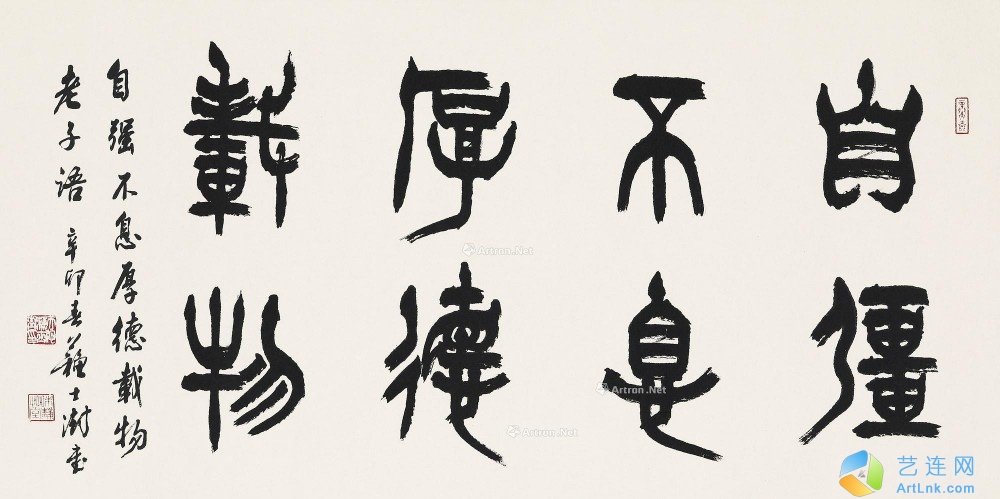 自彊
不息
厚德
載物
自强不息厚德載物
老子语 辛卯春 蘇士澍書
Artron.Net
Artron.Net
Artron.Net
艺连网
ArtLnk.com